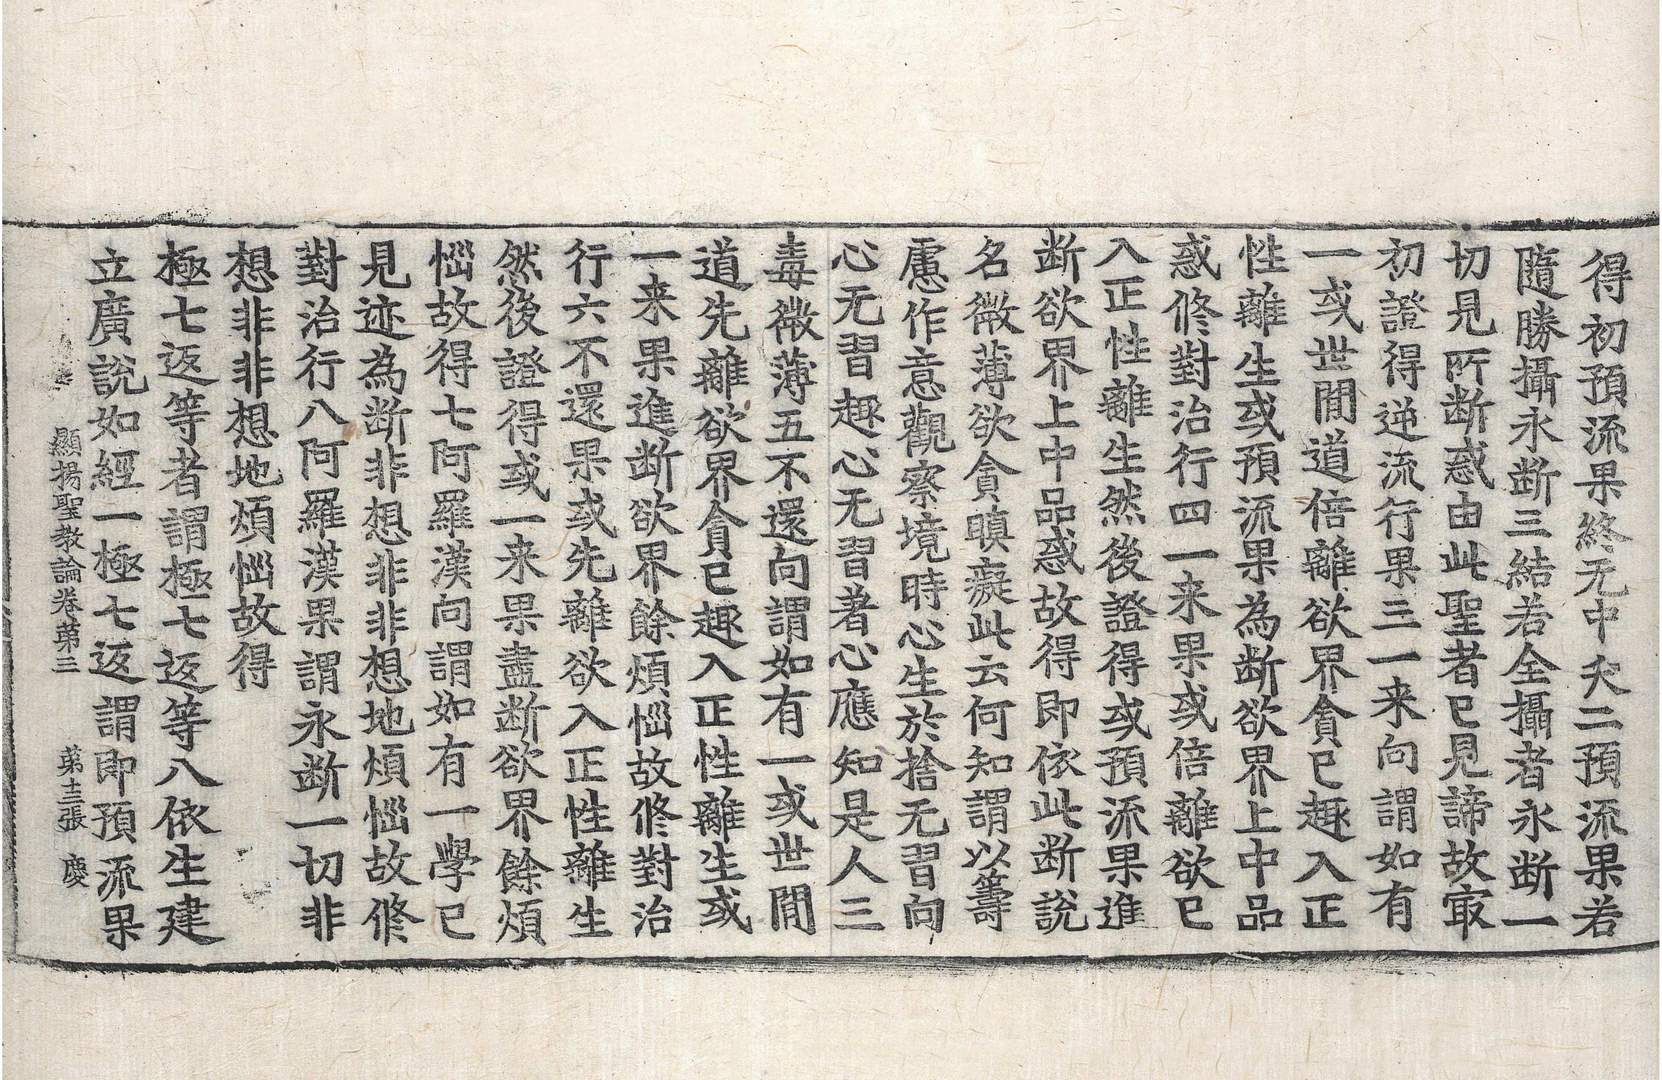 得初預流果終无中夭二預流果若
隨勝攝永断三結若全攝者永断一
切見所断惑由此聖者已見諦故㝡
初證得逆流行果三一来向謂如有
一或世間道倍離欲界貪已趣入正
性離生或預流果為断欲界上中品
惑修對治行四一来果或倍離欲已
入正性離生然後證得或預流果進
断欲界上中品惑故得即依此断說
名微薄欲貪瞋癡此云何知謂以籌
慮作意觀察境時心生於捨无習向
心无習趣心无習著心應知是人三
毒微薄五不還向謂如有一或世間
道先離欲界貪已趣入正性離生或
一来果進断欲界餘煩惱故修對治
行六不還果或先離欲入正性離生
然後證得或一来果盡断欲界餘煩
惱故得七阿羅漢向謂如有一學已
見迹為断非想非非想地煩惱故修
對治行八阿羅漢果謂永断一切非
想非非想地煩惱故得
極七返等者謂極七返等八依生建
立廣說如經一極七返謂即預流果
顯揚聖教論卷第三 第十三張 慶